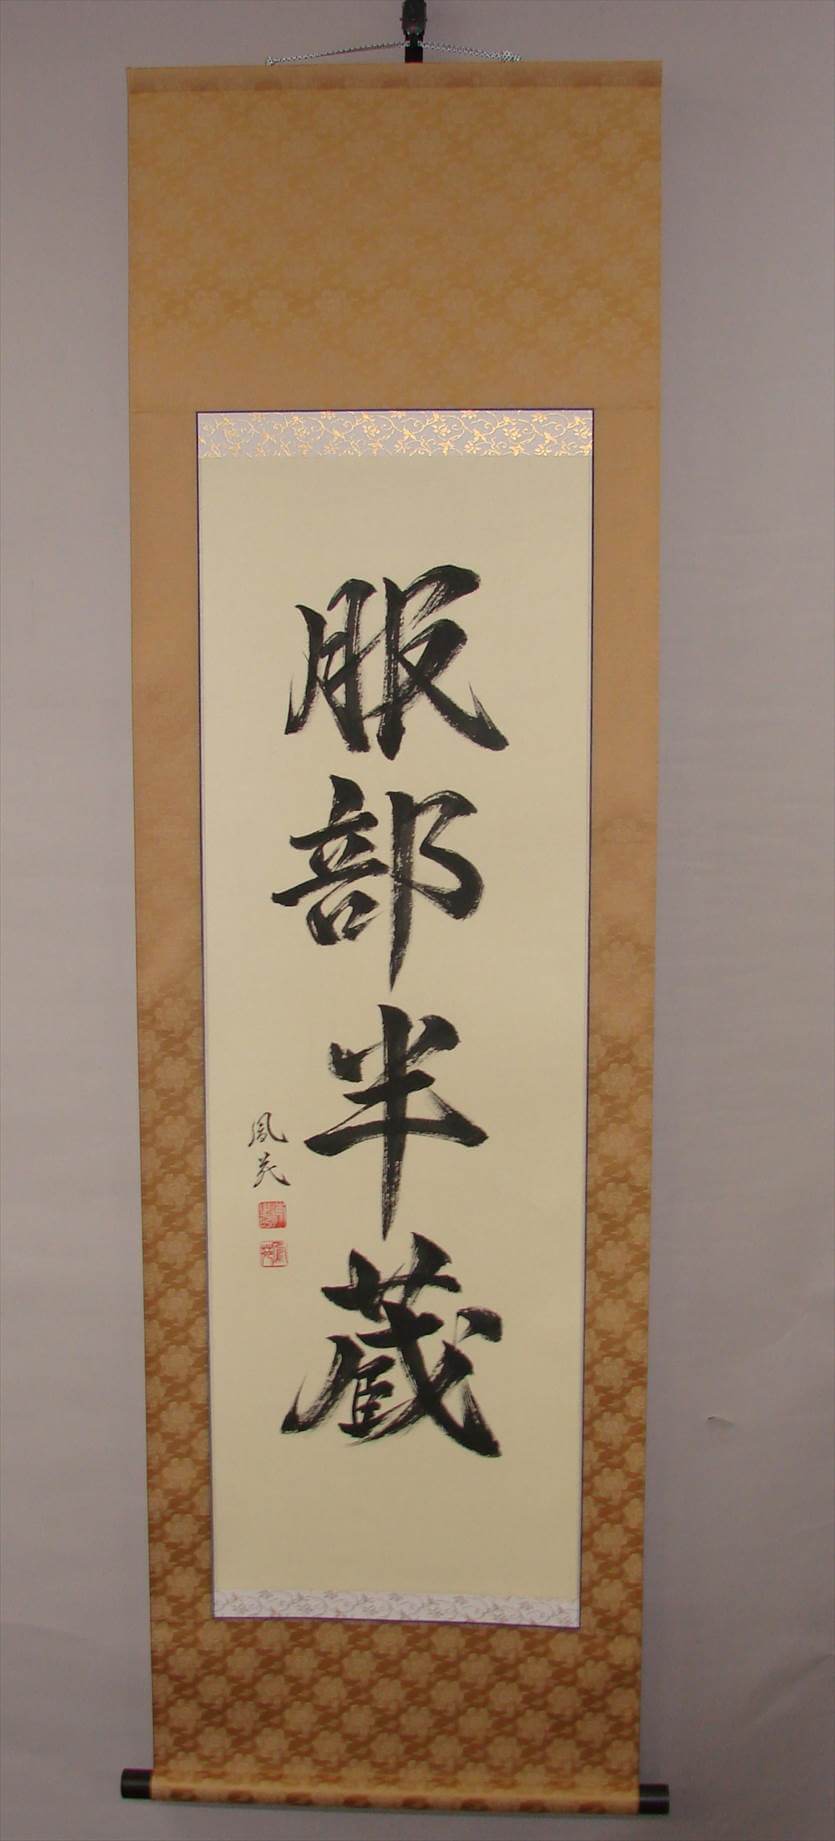 服部半蔵
鳳美